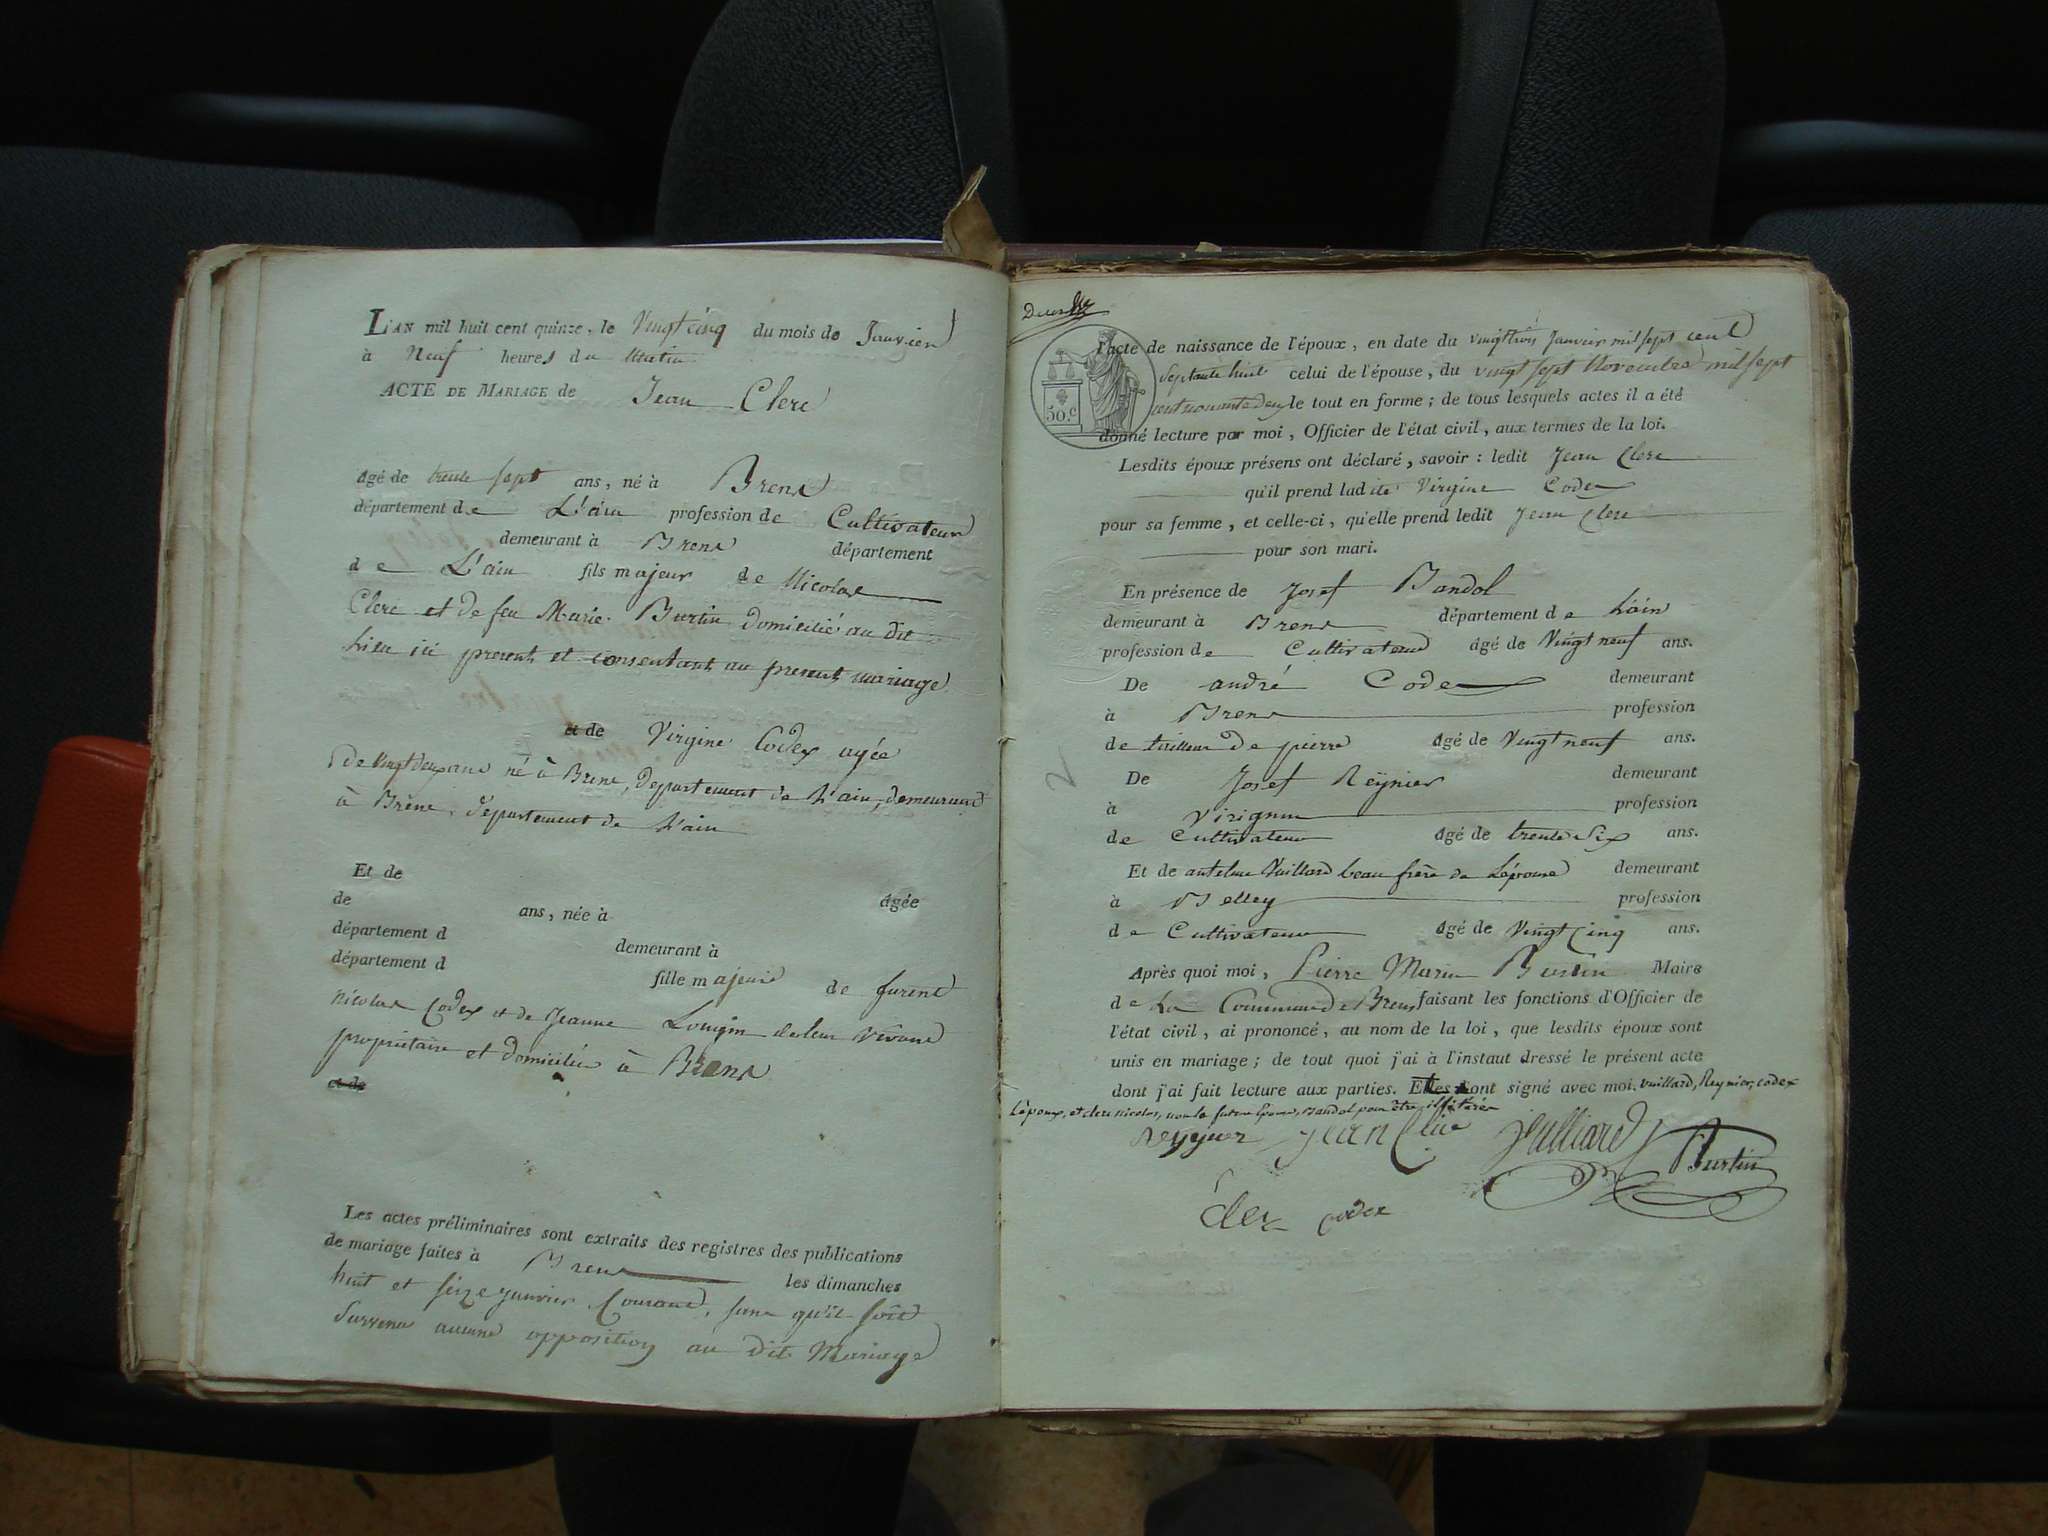 L'AN mil huit cent quinze, le Vingt cinq du mois de Janvier
à Neuf heures du Matin
ACTE DE MARIAGE de Jean Clerc
âgé de trente sept ans, né à Brens
département de L'ain profession de Cultivateur
demeurant à Brens département
de L'ain fils majeur de Nicolas
Clerc et de feu Marie Burtin domicilié au dit
Lieu ici present et consentant au present mariage
et de Virgine Codex agée
de Vingt deux ans né à Brens, département de L'ain, demeurant
à Brens, département de L'ain
Et de
de ans, née à âgée
département d demeurant à
département d fille majeure de furent
nicolas Codex et de Jeanne Lougin de leur vivant
propriétaire et domiciliés à Brens
et de
Les actes préliminaires sont extraits des registres des publications
de mariage faites à Brens les dimanches
huit et seize janvier Courant, sans qu'il soit
Survenu aucune opposition au dit Mariage
l'acte de naissance de l'époux, en date du vingt trois Janvier mil sept cent
Septante huit celui de l'épouse, du vingt sept Novembre mil sept
cent nonante deux le tout en forme; de tous lesquels actes il a été
50.c
donné lecture par moi, Officier de l'état civil, aux termes de la loi.
Lesdits époux présens ont déclaré, savoir: ledit Jean Clerc
qu'il prend ladite Virgine Codex
pour sa femme, et celle-ci, qu'elle prend ledit Jean Clerc
pour son mari.
En présence de Josef Bandol
demeurant à Brens département de L'ain
profession de Cultivateur âgé de Vingt neuf ans.
De andré Codex demeurant
à Brens profession
de tailleur de pierre âgé de Vingt neuf ans.
De Josef Reynier demeurant
à Virignin profession
de Cultivateur âgé de trente Six ans.
Et de antelme Vuillard beau frère de L'épouse demeurant
à Belley profession
de Cultivateur âgé de Vingt Cinq ans.
Après quoi moi, Pierre Marin Burtin Maire
de La Commune de Brens faisant les fonctions d'Officier de
l'état civil, ai prononcé, au nom de la loi, que lesdits époux sont
unis en mariage; de tout quoi j'ai à l'instant dressé le présent acte
dont j'ai fait lecture aux parties. Elles ont signé avec moi. Vuillard, Reynier, codex
L'époux, et clerc nicolas, non la future Epouse, Bandol pour être illitérés
Reynier Jean Clerc Vuilliard Burtin
Cler codex